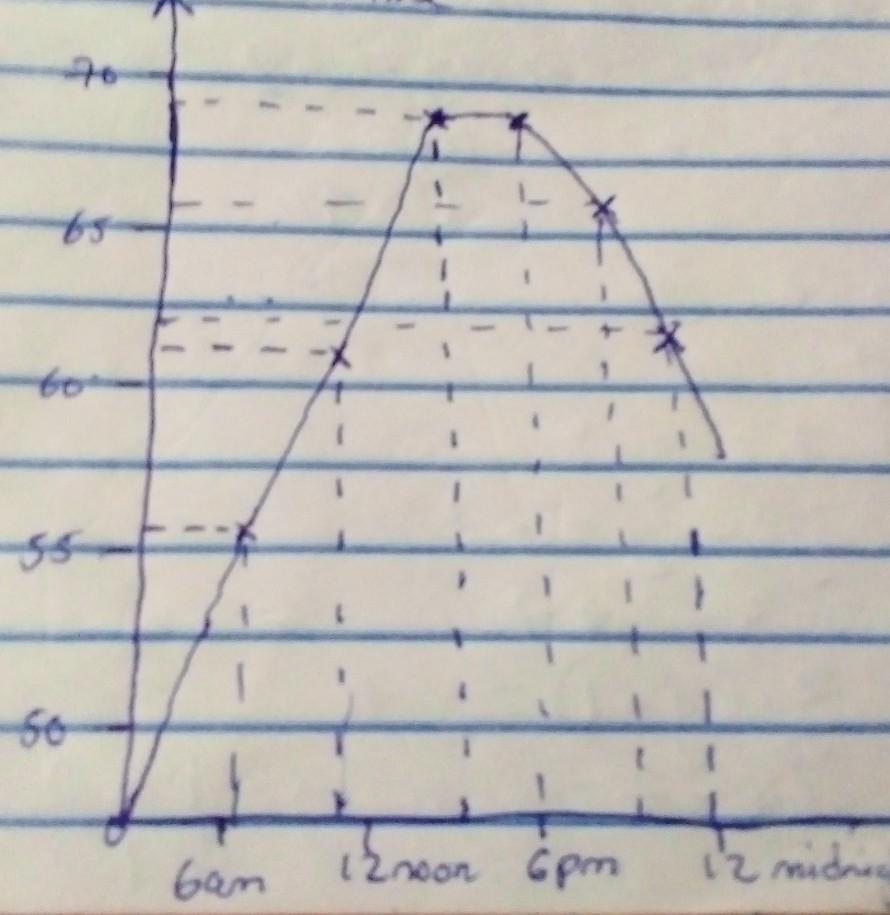 70
65
60
55
50
0
6am 12 noon 6pm 12